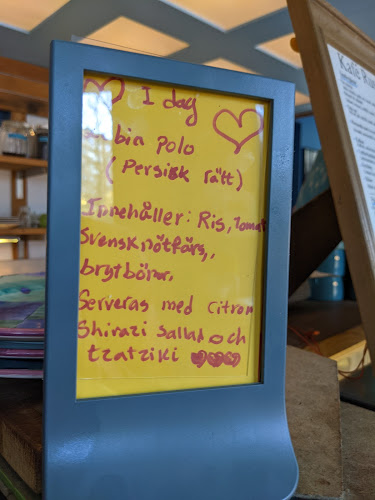 I dag
bin Polo
(Persisk rätt)
Innehåller: Ris, Tomat
Svensknötfärs,
brytbönor,
Serveras med Citron
Shirazi Sallad och
tzatziki